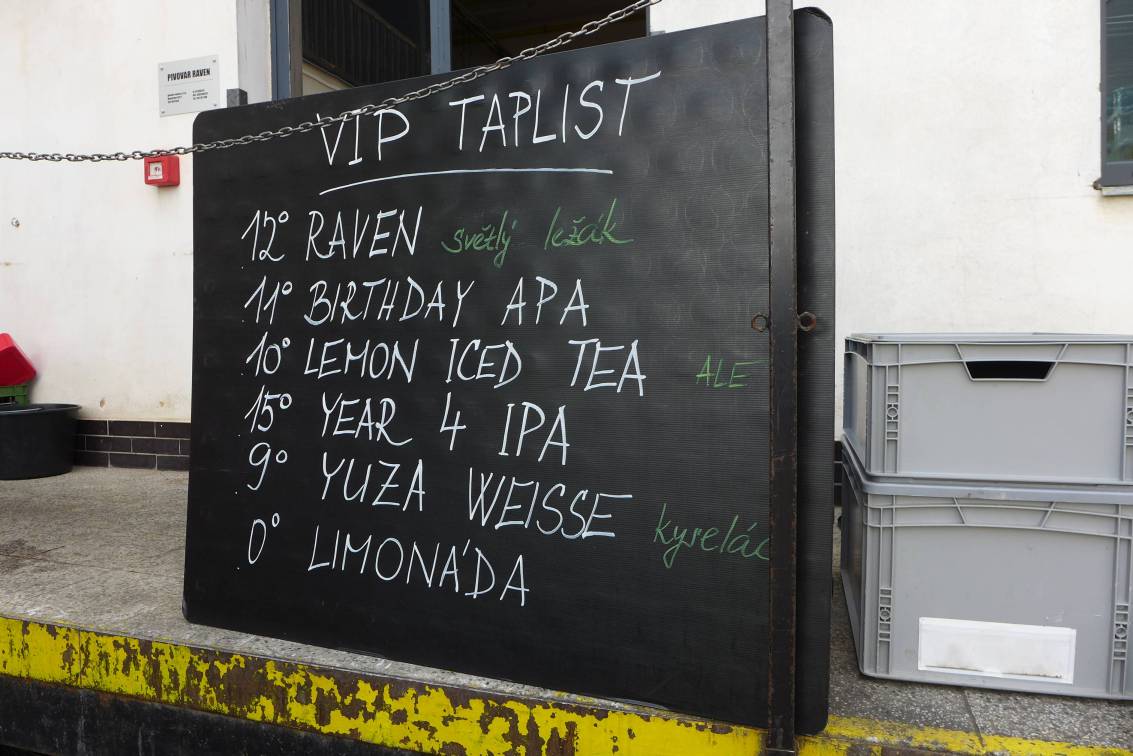 PIVOVAR RAVEN
VIP TAPLIST
12° RAVEN světlý ležák
11° BIRTHDAY APA
10° LEMON ICED TEA ALE
15° YEAR 4 IPA
9° YUZA WEISSE kyselác
0° LIMONÁDA